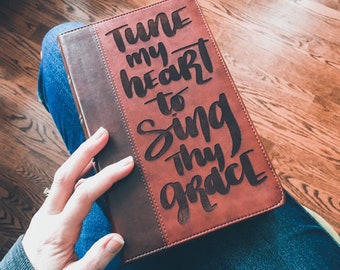 TUNE
my
HEART
to
Sing
Thy
GRACE